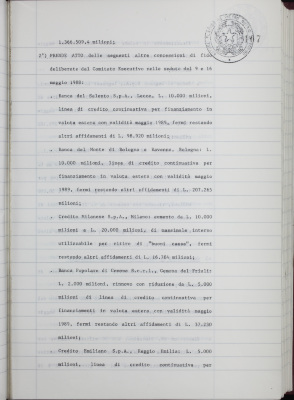 1.366.509,4 milioni;
2°) PRENDE ATTO delle seguenti altre concessioni di fidi
deliberate dal Comitato Esecutivo nelle sedute del 9 e 16
maggio 1988:
- Banca del Salento S.p.A., Lecce, L. 10.000 milioni,
linea di credito continuativo per finanziamento in
valuta estera con validità maggio 1989, fermi restando
altri affidamenti di L. 98.320 milioni;
- Banca del Monte di Bologna e Ravenna, Bologna: L.
10.000 milioni, linea di credito continuativa per
finanziamento in valuta estera con validità maggio
1989, fermi restando altri affidamenti di L. 207.265
milioni;
- Credito Milanese S.p.A., Milano: aumento da L. 10.000
milioni a L. 20.000 milioni, di massimale interno
utilizzabile per ritiro di "buoni cassa", fermi
restando altri affidamenti di L. 68.784 milioni;
- Banca Popolare di Gemona S.c.r.l., Gemona del Friuli:
L. 2.000 milioni, rinnovo con riduzione da L. 5.000
milioni di linea di credito continuativo per
finanziamenti in valuta estera con validità maggio
1989, fermi restando altri affidamenti di L.
milioni;
- Credito Emiliano S.p.A., Reggio Emilia: L. 5.000
milioni, linea di credito continuativo per